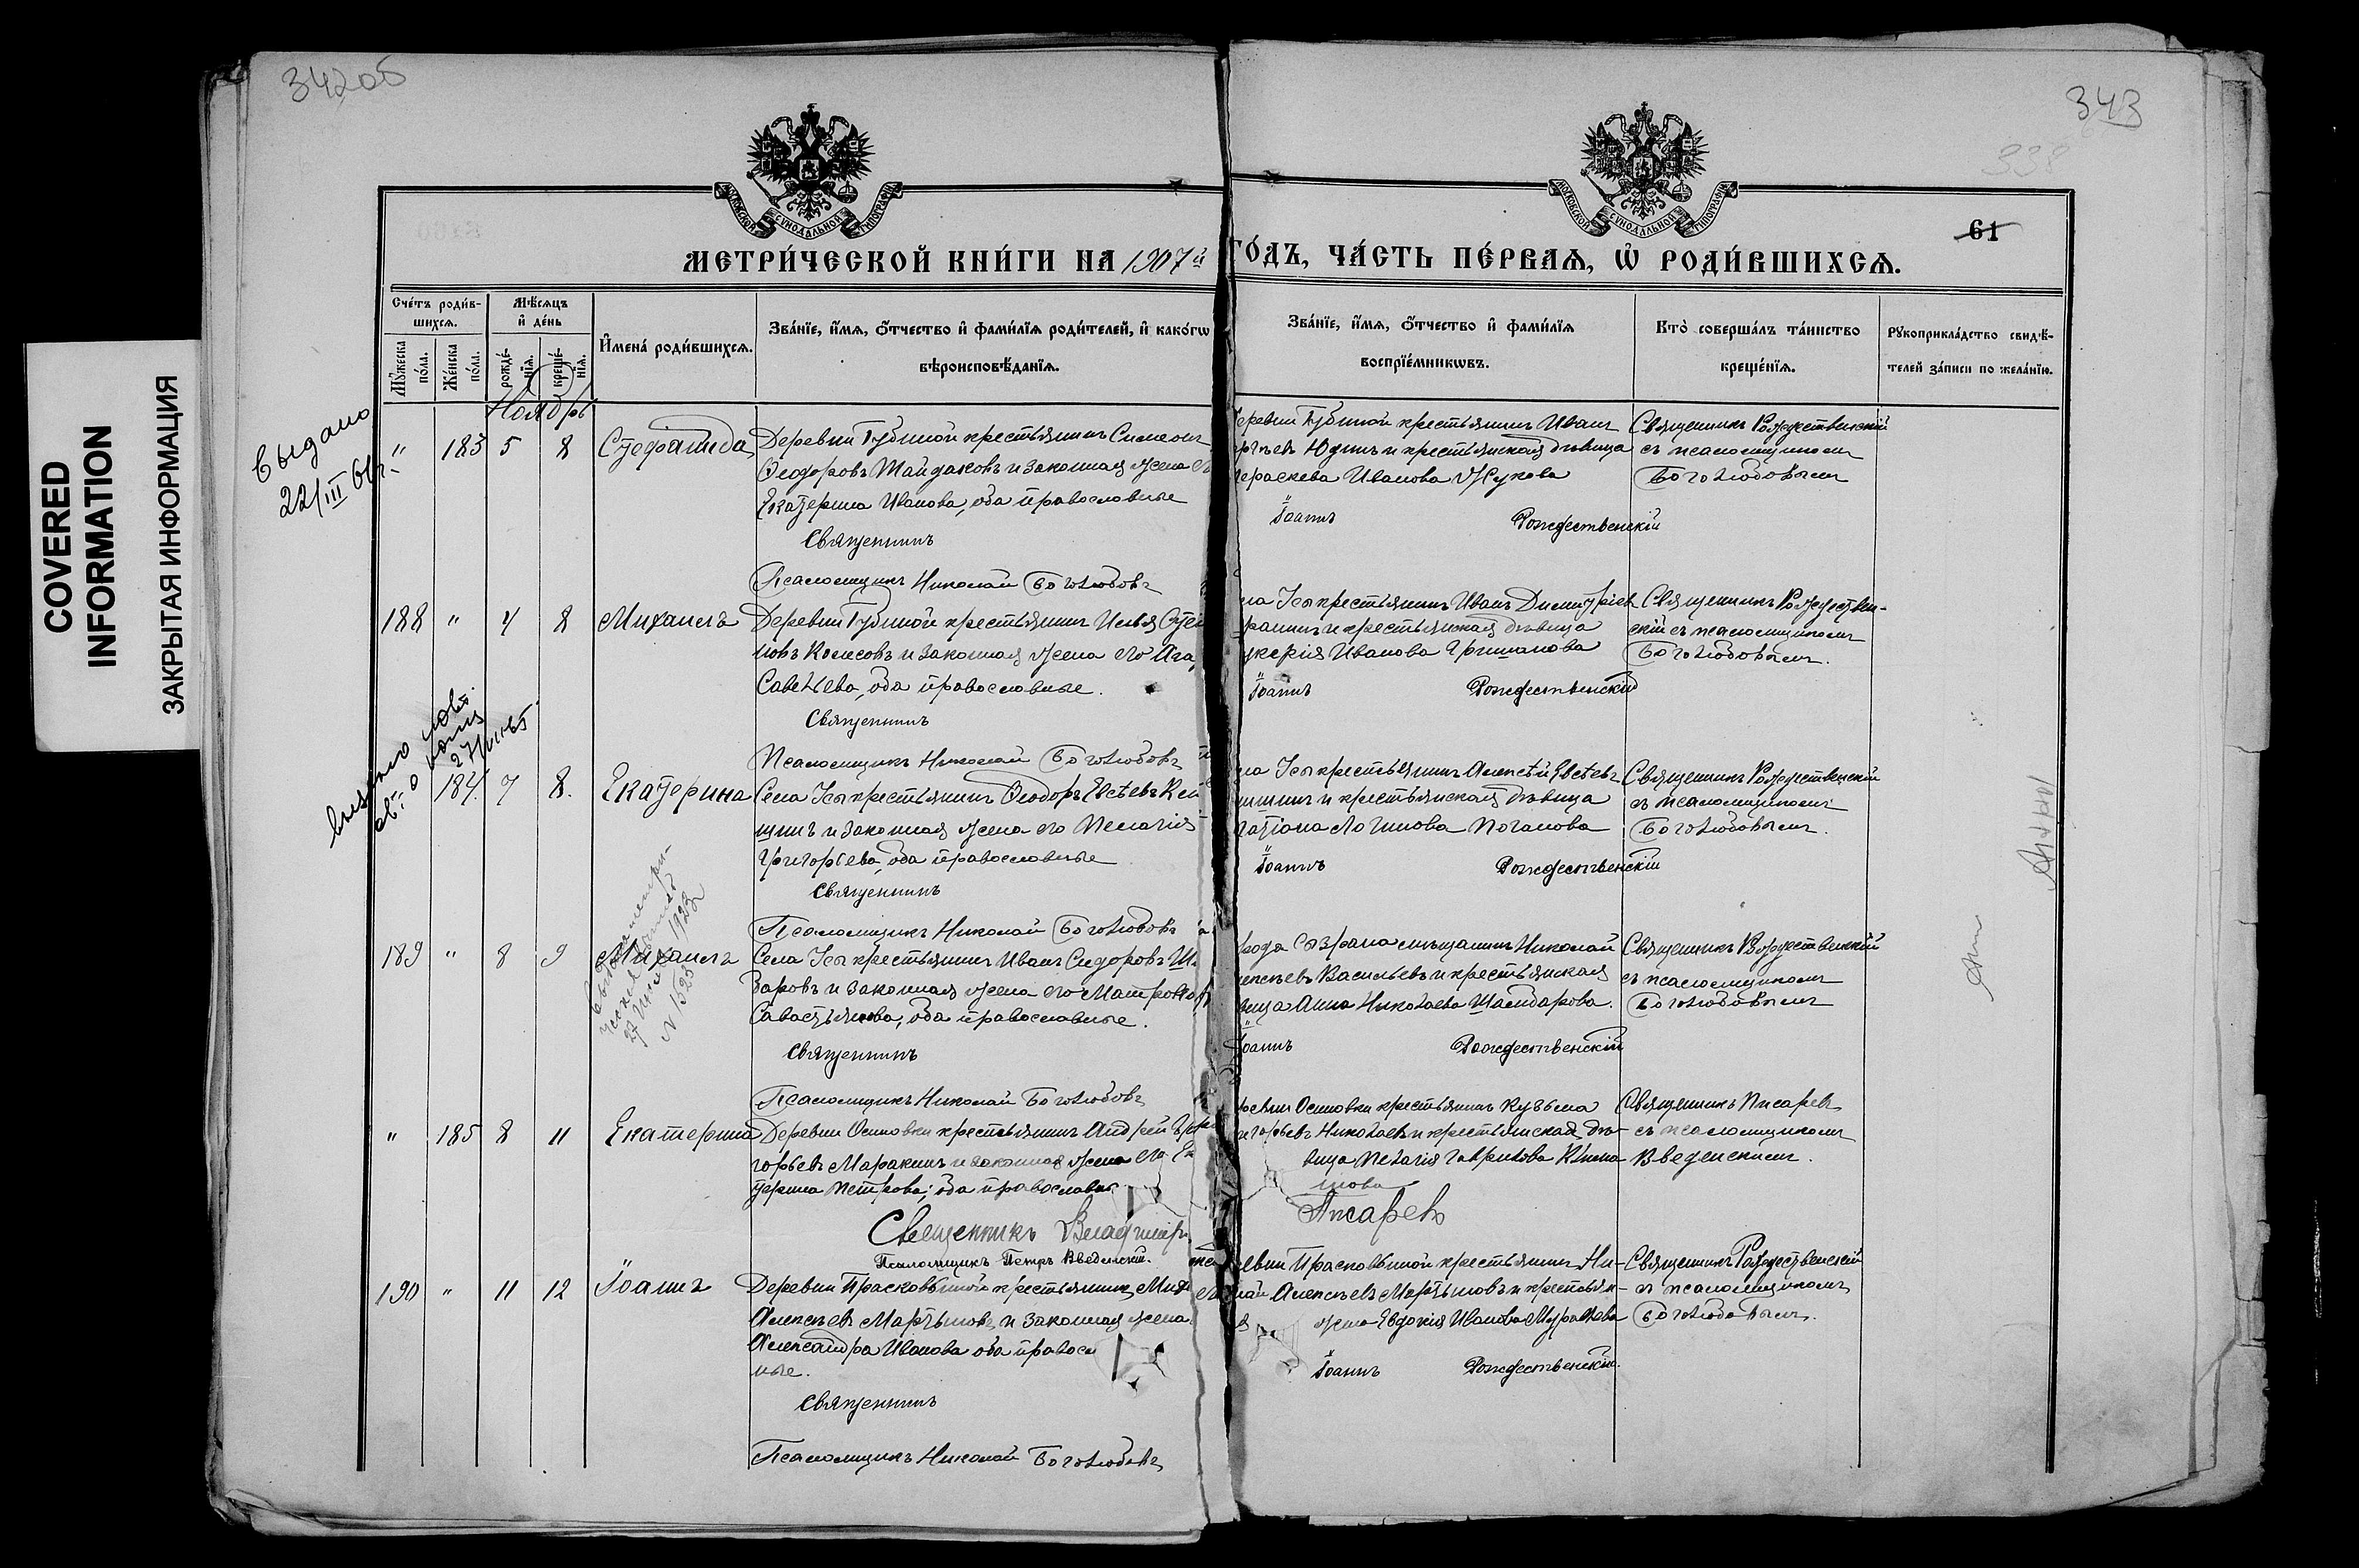 342об
343
61
COVERED
INFORMATION
ЗАКРЫТАЯ ИНФОРМАЦИЯ
МОСКОВСКОЙ СѴНОДАЛЬНОЙ ТИПОГРАФІИ
МОСКОВСКОЙ СѴНОДАЛЬНОЙ ТИПОГРАФІИ
МЕТРИ́ЧЕСКОЙ КНИ́ГИ НА 1907й ГО́ДЪ, ЧА́СТЬ ПЕ́РВАѦ, Ѡ҆ РОДИ́ВШИХСѦ.
Сче́тъ роди́в-
шихсѧ.
Мѣ́сѧцъ
и҆ де́нь
Мꙋ́жеска
по́ла.
Же́нска
по́ла.
рожде́-
нїѧ.
креще́-
нїѧ.
И҆мена̀ роди́вшихсѧ.
Зва́нїе, и҆́мѧ, ѻ҆́тчество и҆ фами́лїѧ роди́телей, и҆ како́гѡ
вѣроисповѣ́данїѧ.
Зва́нїе, и҆́мѧ, ѻ҆́тчество и҆ фами́лїѧ
воспрїе́мникѡвъ.
Кто̀ соверша́лъ та́инство
креще́нїѧ.
Рꙋкоприкла́дство свидѣ́-
телей за́писи по жела́нїю.
Ноябрь
Выдано
22/III
" 183 5 8 Стефанида
Деревни Губиной крестьянинъ Симеонъ
Ѳеодоровъ Майдаковъ и законная жена
Екатерина Иванова, оба православные
Священникъ
Псаломщикъ Николай Боголюбовъ
деревни Губиной крестьянинъ Иванъ
Юдинъ и крестьянская дѣвица
Параскева Иванова Жукова
Іоаннъ Рождественскій
Священникъ Рождественскій
съ псаломщикомъ
Боголюбовымъ
188 " 4 8 Михаилъ
Деревни Губиной крестьянинъ Илья
новъ Колесовъ и законная жена его Ага
Савельева, оба православные.
Священникъ
Псаломщикъ Николай Боголюбовъ
ла Усы крестьянинъ Иванъ Димитріев
и крестьянская дѣвица
укерія Иванова Гришанова
Іоаннъ Рождественскій
Священникъ Рождествен-
скій съ псаломщикомъ
Боголюбовымъ.
184. 7 8. Екатерина
Села Усы крестьянинъ Ѳеодоръ Евсѣевъ
щинъ и законная жена его Пелагія
Григорьева, оба православные
Священникъ
Псаломщикъ Николай Боголюбовъ
ла Усы крестьянинъ Алексѣй Евсѣевъ
и крестьянская дѣвица
Татіана Логинова Поганова
Іоаннъ Рождественскій
Священникъ Рождественскій
съ псаломщикомъ
Боголюбовымъ.
1923
N 1525
189 " 8 9 Михаилъ
Села Усы крестьянинъ Иванъ Сидоровъ
заровъ и законная жена его Матрона
Савастьянова, оба православные.
Священникъ
Псаломщикъ Николай Боголюбовъ
рода Сызрана мѣщанинъ Николай
лексѣевъ Васильевъ и крестьянская
вица Анна Николаева Шалидарова.
Іоаннъ Рождественскій
Священникъ Рождественскій
съ псаломщикомъ
Боголюбовымъ
" 185 8 11 Екатерина
Деревни Осиновки крестьянинъ Андрей Гри
горьевъ Маракинъ и законная жена его Ека
терина Петрова; оба православн
Священникъ Владимiр
Псаломщикъ Петръ Введенскій.
Осиновки крестьянинъ Кузьма
игорьевъ Николаевъ и крестьянская дѣ-
вица Пелагія Гаврилова Клима
нова
Писаревъ
Священникъ Писаревъ
съ псаломщикомъ
Введенскимъ.
190 " 11 12 Іоаннъ
Деревни Прасковьиной крестьянинъ Миха
Алексѣевъ Мартыновъ и законная жена
Александра Иванова оба правосл
ные.
Священникъ
Псаломщикъ Николай Боголюбовъ
евни Прасковьиной крестьянинъ Ни-
лай Алексѣевъ Мартыновъ и крестьян-
жена Евдокія Иванова Муравьева
Іоаннъ Рождественскій.
Священникъ Рождественскій
съ псаломщикомъ
Боголюбовымъ.